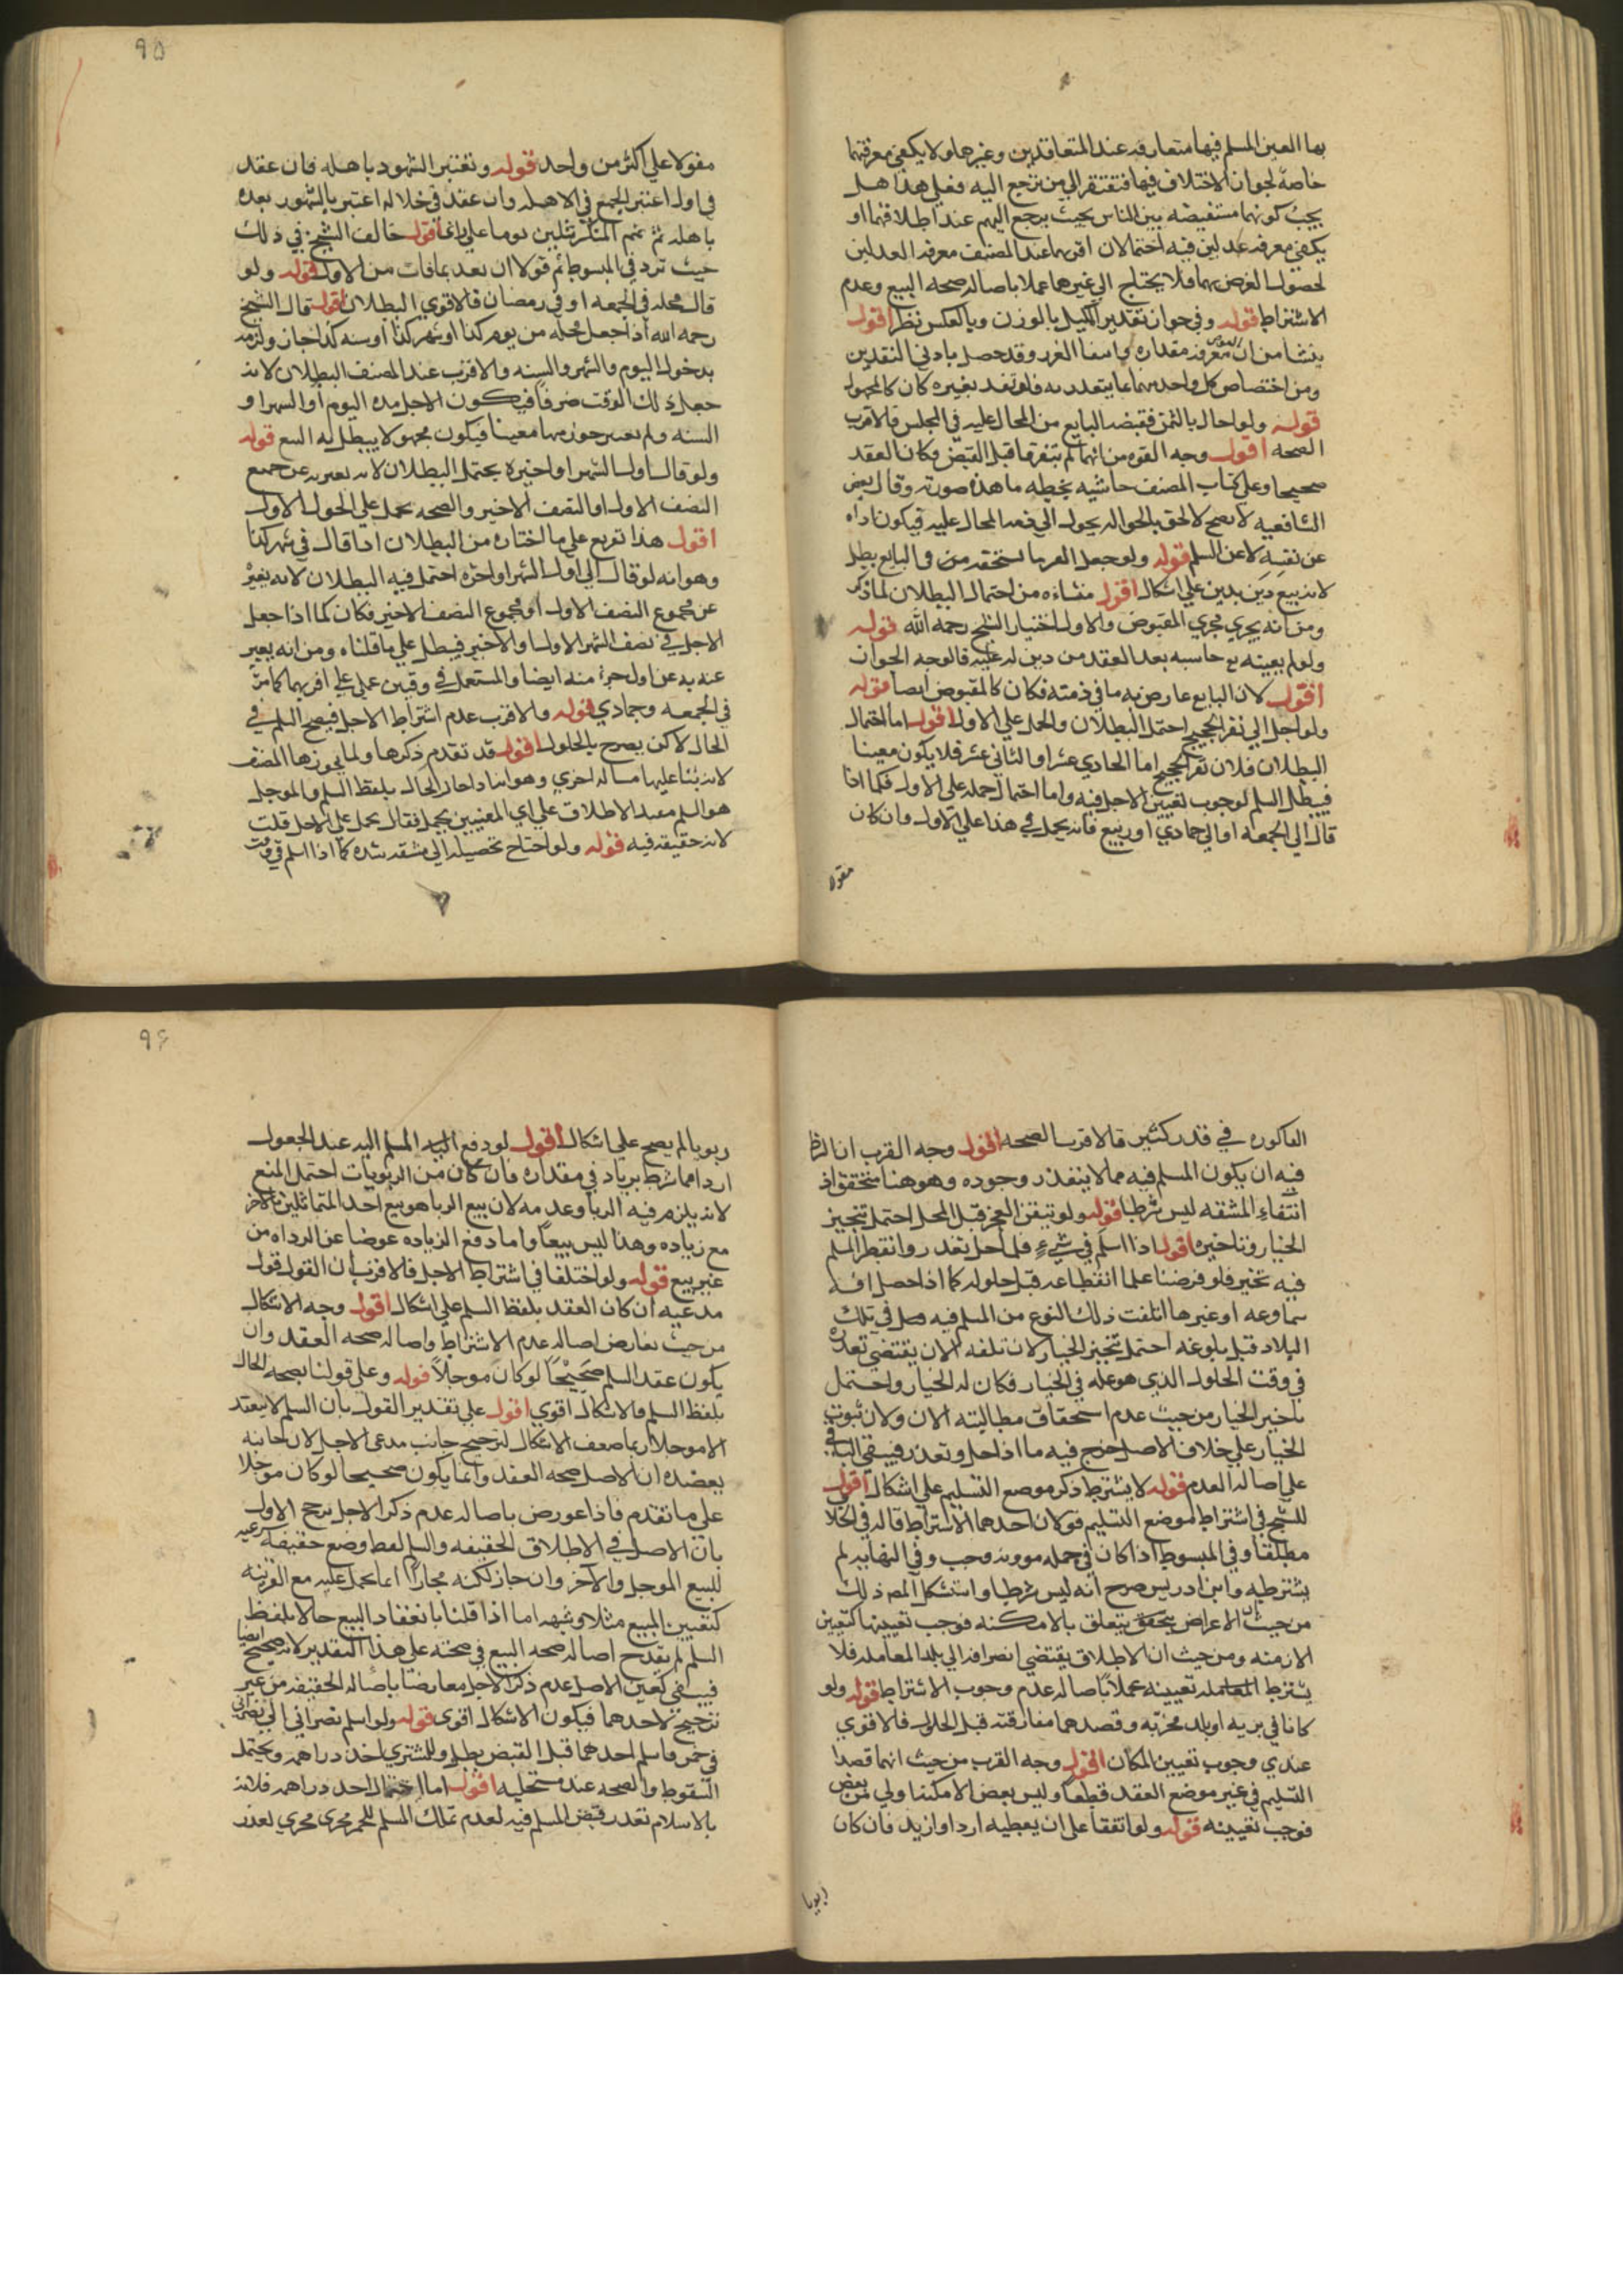 بها العين المسلم فيها متعارفه عند المتعاقدين وغيرهما ولا يكفي معرفتهما
خاصة لجواز الاختلاف فيها فتفتقر الي من نرجع اليه فعلي هذا هل
يجب كونهما مستفيضه بين الناس بحيث يرجع اليهم عند اطلاقهما او
يكفي معرفه عدلين فيه احتمالان اقربهما عند المصنف معرفه العدلين
لحصول الغرض بهما فلا يحتاج الي غيرهما عملا باصاله صحه البيع وعدم
الاشتراط قوله وفي جواز تقدير المكيل بالوزن وبالعكس نظر اقول
ينشا من ان معرفه مقداره انتفا الغرر وقد حصل باد
ومن اختصاص كل واحد منهما بما يتقدر به فلو تقدر بغيره كان كالمجهول
قوله ولو احال بالثمن فقبضه البايع من المحال عليه في المجلس فالاقرب
الصحه اقول وجه القرب من انهما لم يتفرقا قبل القبض فكان العقد
صحيحا وعلي كتاب المصنف حاشيه بخطه ما هذه صورته وقال بعض
الشافعيه لا يصح لان الحق بالحواله يحول الي ذمه المحال عليه فيكون اداه
عن نفسه لا عن السلم قوله ولو جعل الغريم ما يستحقه من في البايع بطل
لانه بيع دين بدين علي اشكال اقول منشاءه من احتمال البطلان لما ذكر
ومن انه يجري مجري المقبوض والاول اختيار الشيخ رحمه الله قوله
ولو لم يعينه ثم حاسبه بعد العقد من دين له عليه فالوجه الجواز
اقول لان البايع عارضه ما في ذمته فكان كالمقبوض ايضا قوله
ولو اجل الي نفر الحجيج احتمل البطلان والحمل علي الاول اقول اما احتمال
البطلان فلان نفر الحجيج اما الحادي عشر او الثاني عشر فلا يكون معينا
فيبطل السلم لوجوب تعيين الاجل فيه واما احتمال حمله علي الاول فكما اذا
قال الي الجمعه او الي جمادي او ربيع فانه يحمل في هذا علي الاول وان كان
مقولا
٩٥
مقولا علي اكثر من واحد قوله وتعتبر الشهور باهله فان عقد
في اوله اعتبر الجميع في الاهله وان عقد في خلاله اعتبر بالشهور بعده
باهله ثم يتمم المنكسر ثلثين يوما علي راي اقول خالف الشيخ في ذلك
حيث تردد في المبسوط ثم قولا انه يعد بما فات من الاول قوله ولو
قال محله في الجمعه او في رمضان فالاقوي البطلان اقول قال الشيخ
رحمه الله اذا جعل محله من يوم كذا او شهر كذا او سنه كذا جاز ولزمه
بدخول اليوم والشهر والسنه والاقرب عند المصنف البطلان لانه
جعل ذلك الوقت ظرفا فيكون الاجل مده اليوم او الشهر او
السنه ولم يعين جزء منها معينا فيكون مجهولا يبطل به البيع قوله
ولو قال اول الشهر او اخيره يحتمل البطلان لانه يعبر به عن جميع
النصف الاول او النصف الاخير والصحه يحمل علي الجزء الاول
اقول هذا تفريع علي ما اختاره من البطلان اذا قال في شهر كذا
وهو انه لو قال الي اول الشهر او اخره احتمل فيه البطلان لانه يعبر
عن مجموع النصف الاول او مجموع النصف الاخير فكان كما اذا جعل
الاجل في نصف الشهر الاول او الاخير فيبطل علي ما قلناه ومن انه يعبر
عنه به عن اول جزء منه ايضا والمستعمل في وقتين حمل علي اقربهما كما مر
في الجمعه وجمادي قوله والاقرب عدم اشتراط الاجل فيصح السلم في
الحال لا كن يصرح بالحلول اقول قد تقدم ذكرها ولما يجوزها المصنف
لانه بنا عليها مساله اخري وهو انه اذا جاز الحال بلفظ السلم والموجل
هو السلم فعند الاطلاق علي اي المعنيين يحمل فقال يحمل علي الاجل قلت
لانه حقيقه فيه قوله ولو احتاج تحصيله الي مشقه شديده كما اذا اسلم في وقت
الباكوره في قدر كثير فالاقرب الصحه اقول وجه القرب ان الشرط
فيه ان يكون المسلم فيه مما لا يتعذر وجوده وهو هنا متحقق اذ
انتفاء المشقه ليس شرطا قوله ولو تيقن العجز قبل المحل احتمل تنجيز
الخيار وتاخيره اقول اذا اسلم في شيء فلما حل تعذر وانقطع المسلم
فيه تخير فلو فرضنا علما انقطاعه قبل حلوله كما اذا حصل افه
سماويه او غيرها اتلفت ذلك النوع من المسلم فيه في تلك
البلاد قبل بلوغه احتمل تنجيز الخيار لان تلفه الان يقتضي تعذره
في وقت الحلول الذي هو عله في الخيار فكان له الخيار واحتمل
تاخير الخيار من حيث عدم استحقاق مطالبته الان ولان ثبوت
الخيار علي خلاف الاصل خرج فيه ما اذا حل وتعذر فيبقي الباقي
علي اصاله العدم قوله لا يشترط ذكر موضع التسليم علي اشكال اقول
للشيخ في اشتراط الموضع التسليم قولان احدهما الاشتراط قاله في الخلاف
مطلقا وفي المبسوط اذا كان في حمله مؤونه وجب وفي النهايه لم
يشترطه وابن ادريس صرح انه ليس شرطا واستشكل المص ذلك
من حيث ان الاغراض يتعلق بالامكنه فوجب تعيينها كتعيين
الازمنه ومن حيث ان الاطلاق يقتضي انصرافه الي بلد المعامله فلا
يشترط تعيينه عملا باصاله عدم وجوب الاشتراط قوله ولو
كانا في بريه او بلد مخربه وقصدهما مفارقته قبل الحلول فالاقوي
عندي وجوب تعيين المكان اقول وجه القرب من حيث انهما قصدا
التسليم في غير موضع العقد قطعا وليس بعض الامكنه اولي من بعض
فوجب تعيينه قوله ولو اتفقا علي ان يعطيه اردا وازيد فان كان
ربويا
٩٦
ربويا لم يصح علي اشكال اقول لو دفع المسلم اليه عند الحلول
اردا مما شرط بزياده في مقداره فان كان من الربويات احتمل المنع
لانه يلزم فيه الربا وعدمه لان بيع الربا هو بيع احد المتماثلين بالاخر
مع زياده وهذا ليس بيعا واما دفع الزياده عوضا عن الرداه من
غير بيع قوله ولو اختلفا في اشتراط الاجل فالاقرب ان القول قول
مدعيه ان كان العقد بلفظ السلم علي اشكال اقول وجه الاشكال
من حيث تعارض اصاله عدم الاشتراط واصاله صحه العقد وان
يكون عقد السلم صحيحا لو كان موجلا قوله وعلي قولنا بصحه الحال
بلفظ السلم فالاشكال اقوي اقول علي تقدير القول بان السلم لا ينعقد
الا موجلا ربما ضعف الاشكال لترجيح جانب مدعي الاجل لان جانبه
يعضده ان الاصل صحه العقد وانما يكون صحيحا لو كان موجلا
علي ما تقدم فاذا عورض باصاله عدم ذكر الاجل يرجح الاول
بان الاصل في الاطلاق الحقيقه والسلم لفظ وضع حقيقه شرعيه
للبيع الموجل والآخر وان جاز لكنه مجازا انما يحمل عليه مع القرينه
كتعيين المبيع مثلا وشبهه اما اذا قلنا بانعقاد البيع حالا بلفظ
السلم لم يقدح اصاله صحه البيع في صحته علي هذا التقدير لانه صحيح ايضا
فيبقي كعين الاصل عدم ذكر الاجل معارضا باصاله الحقيقه من غير
ترجيح لاحدهما فيكون الاشكال اقوي قوله ولو اسلم نصراني الي نصراني
في خمر فاسلم احدهما قبل القبض بطل وللمشتري اخذ دراهمه ويحتمل
السقوط والصحه عند مستحليه اقول اما احتمال اخذ دراهمه فلانه
بالاسلام تعذر قبض المسلم فيه لعدم تملك المسلم للخمر فجري مجري تعذر